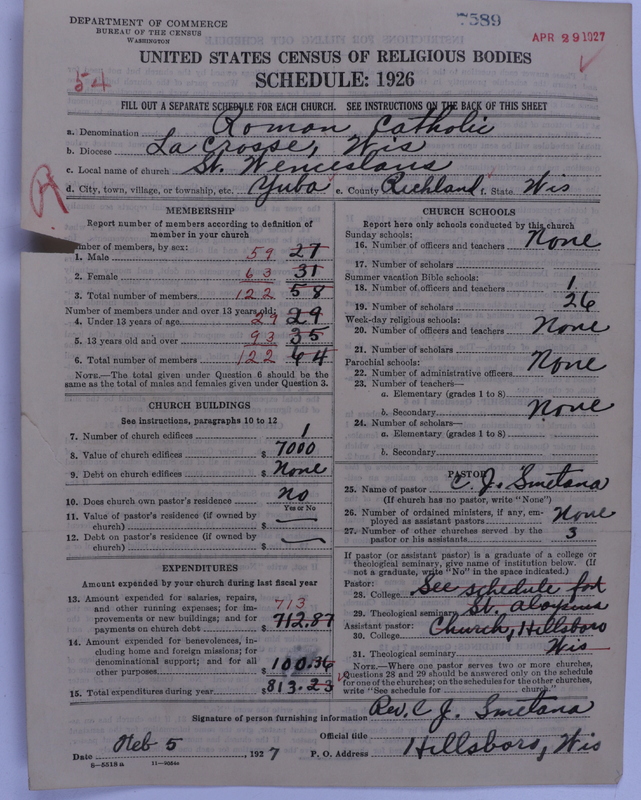 DEPARTMENT OF COMMERCE
BUREAU OF THE CENSUS
WASHINGTON
7589
APR 29 1927
54
UNITED STATES CENSUS OF RELIGIOUS BODIES
SCHEDULE: 1926
FILL OUT A SEPARATE SCHEDULE FOR EACH CHURCH. SEE INSTRUCTIONS ON THE BACK OF THIS SHEET
a. Denomination Roman Catholic
b. Diocese La Crosse, Wis
c. Local name of church St. Wenceslaus
d. City, town, village, or township, etc. Yuba e. County Richland f. State Wis
MEMBERSHIP
Report number of members according to definition of
member in your church
mber of members, by sex:
1. Male 59 27
2. Female 63 31
3. Total number of members 122 58
Number of members under and over 13 years old:
4. Under 13 years of age 29 29
5. 13 years old and over 93 35
6. Total number of members 122 64
NOTE.—The total given under Question 6 should be the
same as the total of males and females given under Question 3.
CHURCH BUILDINGS
See instructions, paragraphs 10 to 12
7. Number of church edifices 1
8. Value of church edifices $ 7000
9. Debt on church edifices $ None
10. Does church own pastor's residence no
Yes or No
11. Value of pastor's residence (if owned by
church) $ —
12. Debt on pastor's residence (if owned by
church) $ —
EXPENDITURES
Amount expended by your church during last fiscal year
13. Amount expended for salaries, repairs,
and other running expenses; for im-
provements or new buildings; and for
payments on church debt $ 713 712.87
14. Amount expended for benevolences, in-
cluding home and foreign missions; for
denominational support; and for all
other purposes 100.36
15. Total expenditures during year $ 813.23
CHURCH SCHOOLS
Report here only schools conducted by this church
Sunday schools:
16. Number of officers and teachers None
17. Number of scholars
Summer vacation Bible schools:
18. Number of officers and teachers 1
19. Number of scholars 26
Week-day religious schools:
20. Number of officers and teachers None
21. Number of scholars
Parochial schools:
22. Number of administrative officers None
23. Number of teachers—
a. Elementary (grades 1 to 8)
b. Secondary None
24. Number of scholars—
a. Elementary (grades 1 to 8)
b. Secondary
PASTOR
25. Name of pastor C. J. Smetana
(If church has no pastor, write "None")
26. Number of ordained ministers, if any, em-
ployed as assistant pastors None
27. Number of other churches served by the
pastor or his assistants 3
If pastor (or assistant pastor) is a graduate of a college or
theological seminary, give name of institution below. (If
not a graduate, write "No" in the space indicated.)
Pastor:
28. College See schedule for
29. Theological seminary St. Aloysius
Assistant pastor:
30. College Church, Hillsboro
31. Theological seminary Wis
NOTE.—Where one pastor serves two or more churches,
Questions 28 and 29 should be answered only on the schedule
for one of the churches; on the schedules for the other churches,
write "See schedule for church."
Signature of person furnishing information Rev. C J. Smetana
Official title
Date Feb 5 1927 P. O. Address Hillsboro, Wis
8-5518a 11-9034a